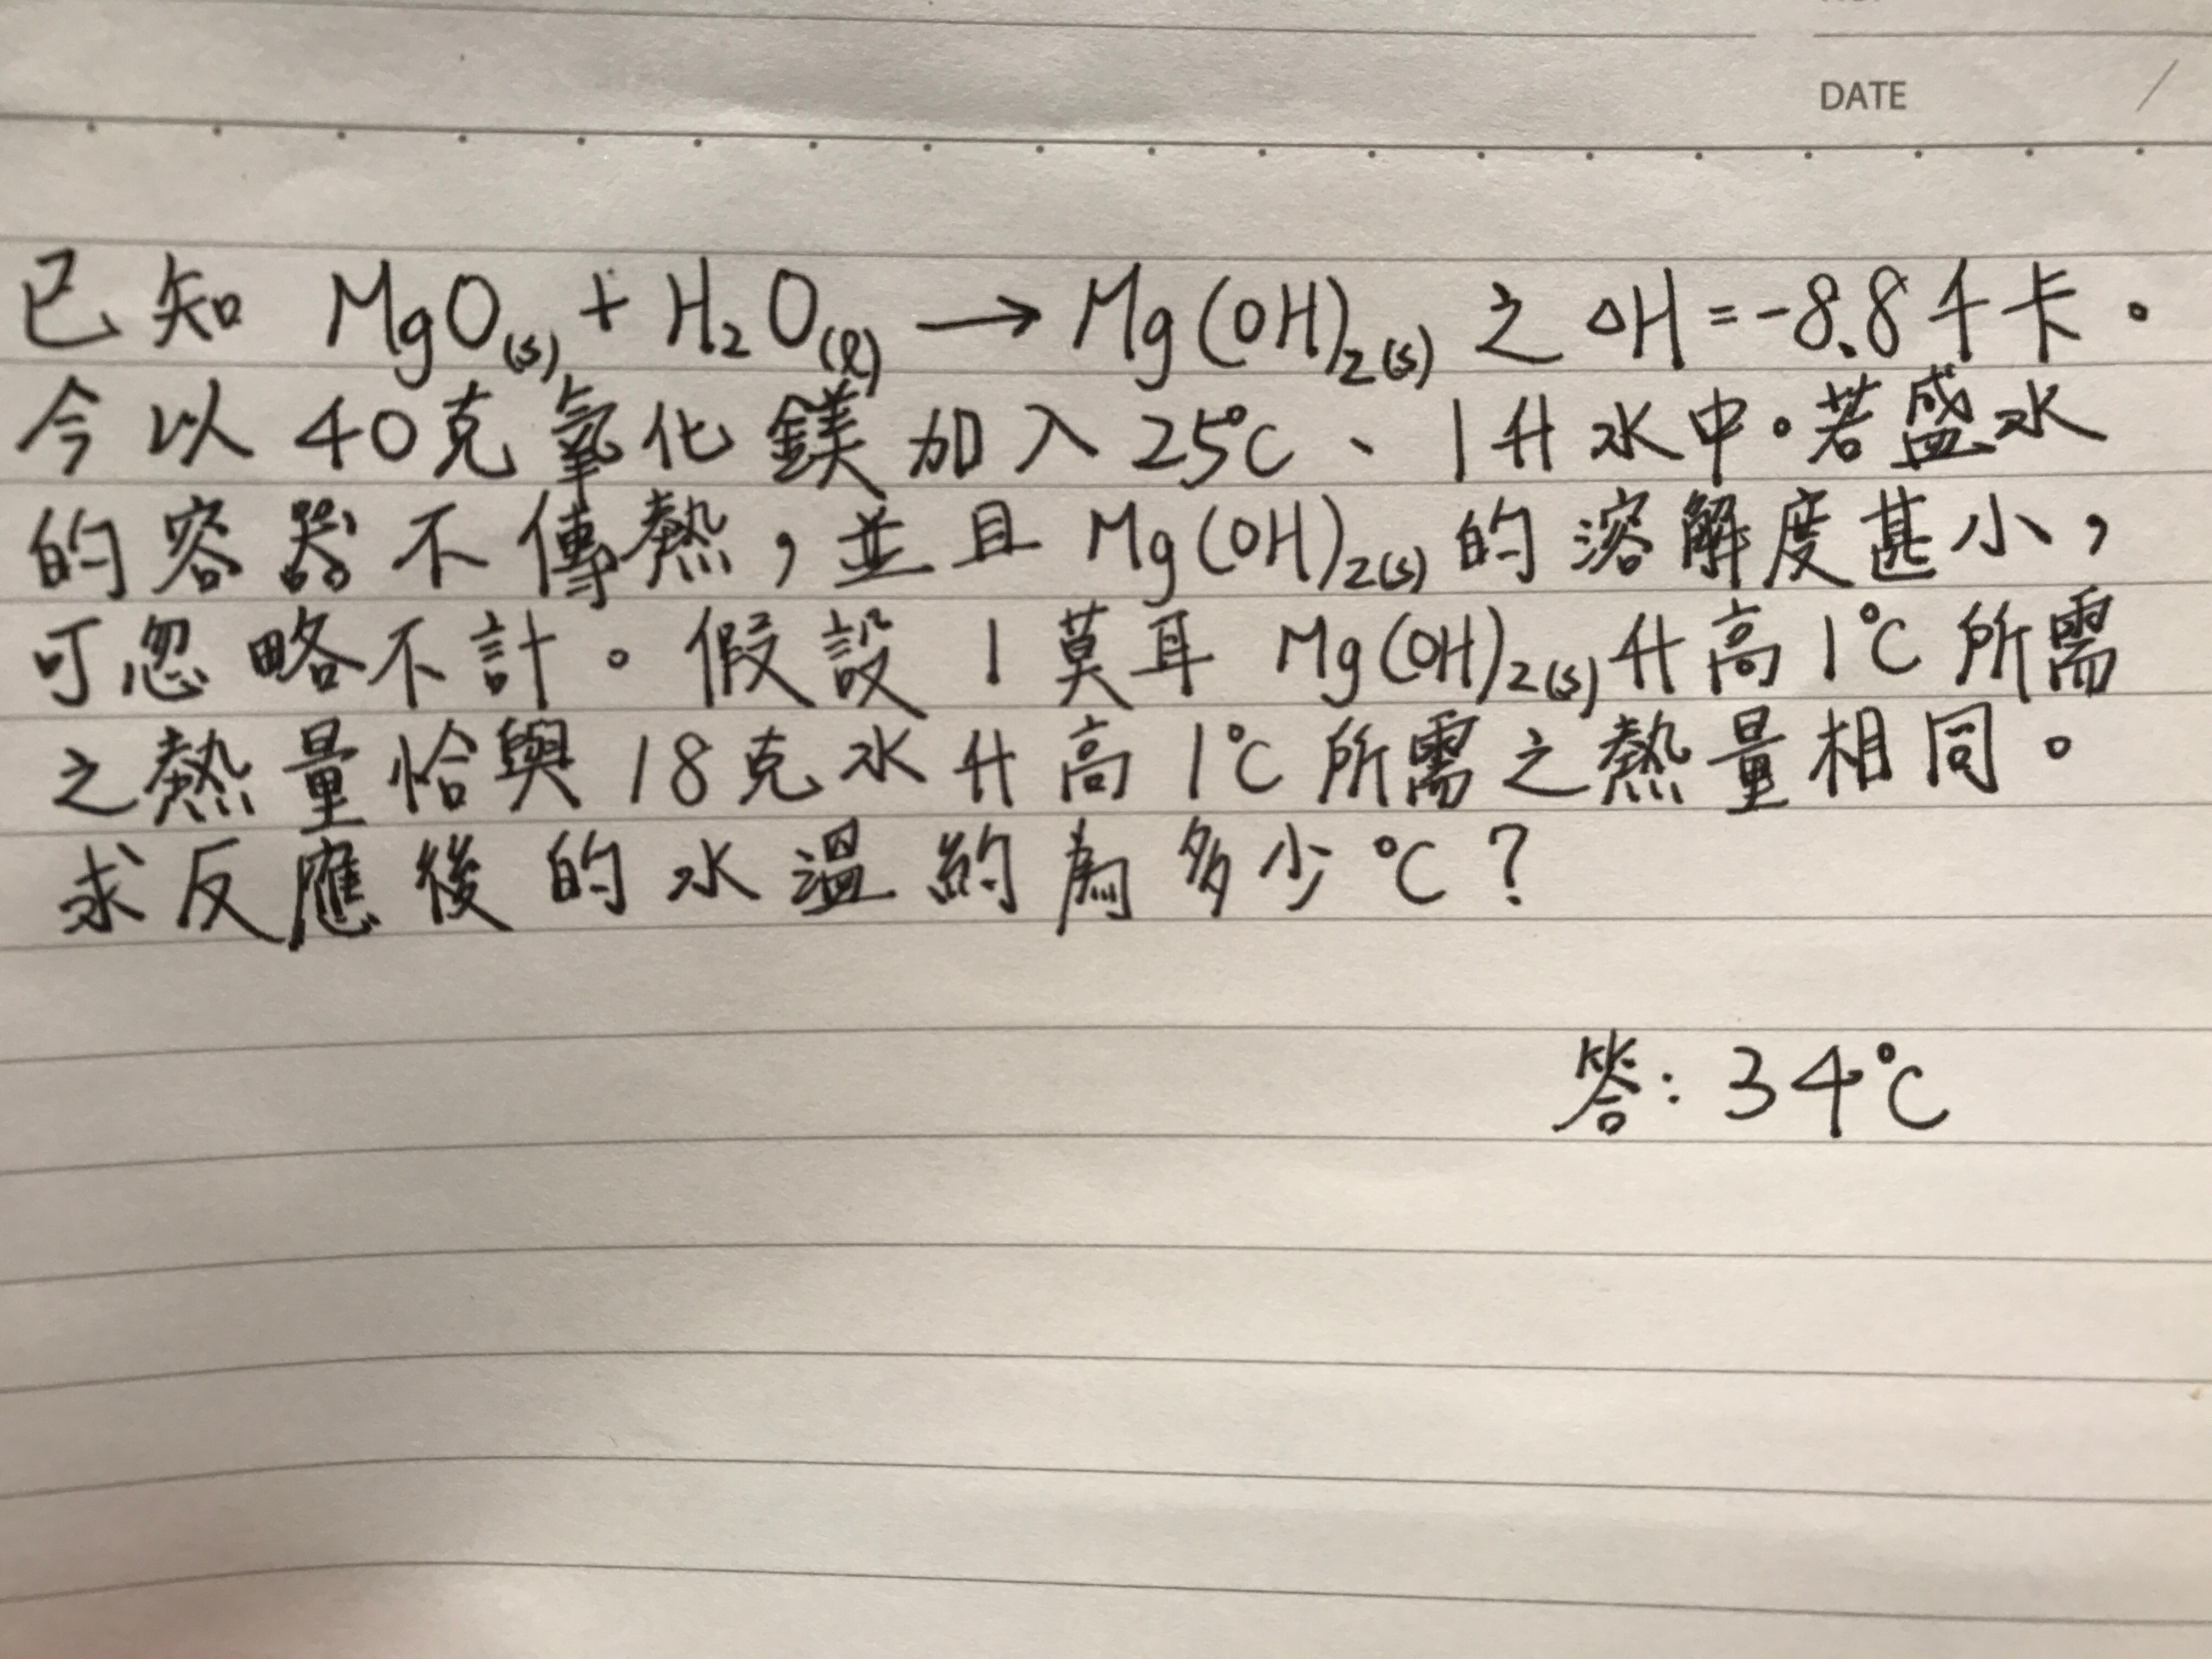 DATE /
已知 MgO(s) + H₂O(l) → Mg(OH)₂(s) 之 ΔH = -8.8千卡。
今以40克氧化鎂加入25℃、1升水中。若盛水
的容器不傳熱,並且Mg(OH)₂(s)的溶解度甚小,
可忽略不計。假設1莫耳 Mg(OH)₂(s)升高1℃所需
之熱量恰與18克水升高1℃所需之熱量相同。
求反應後的水溫約為多少℃?
答:34℃